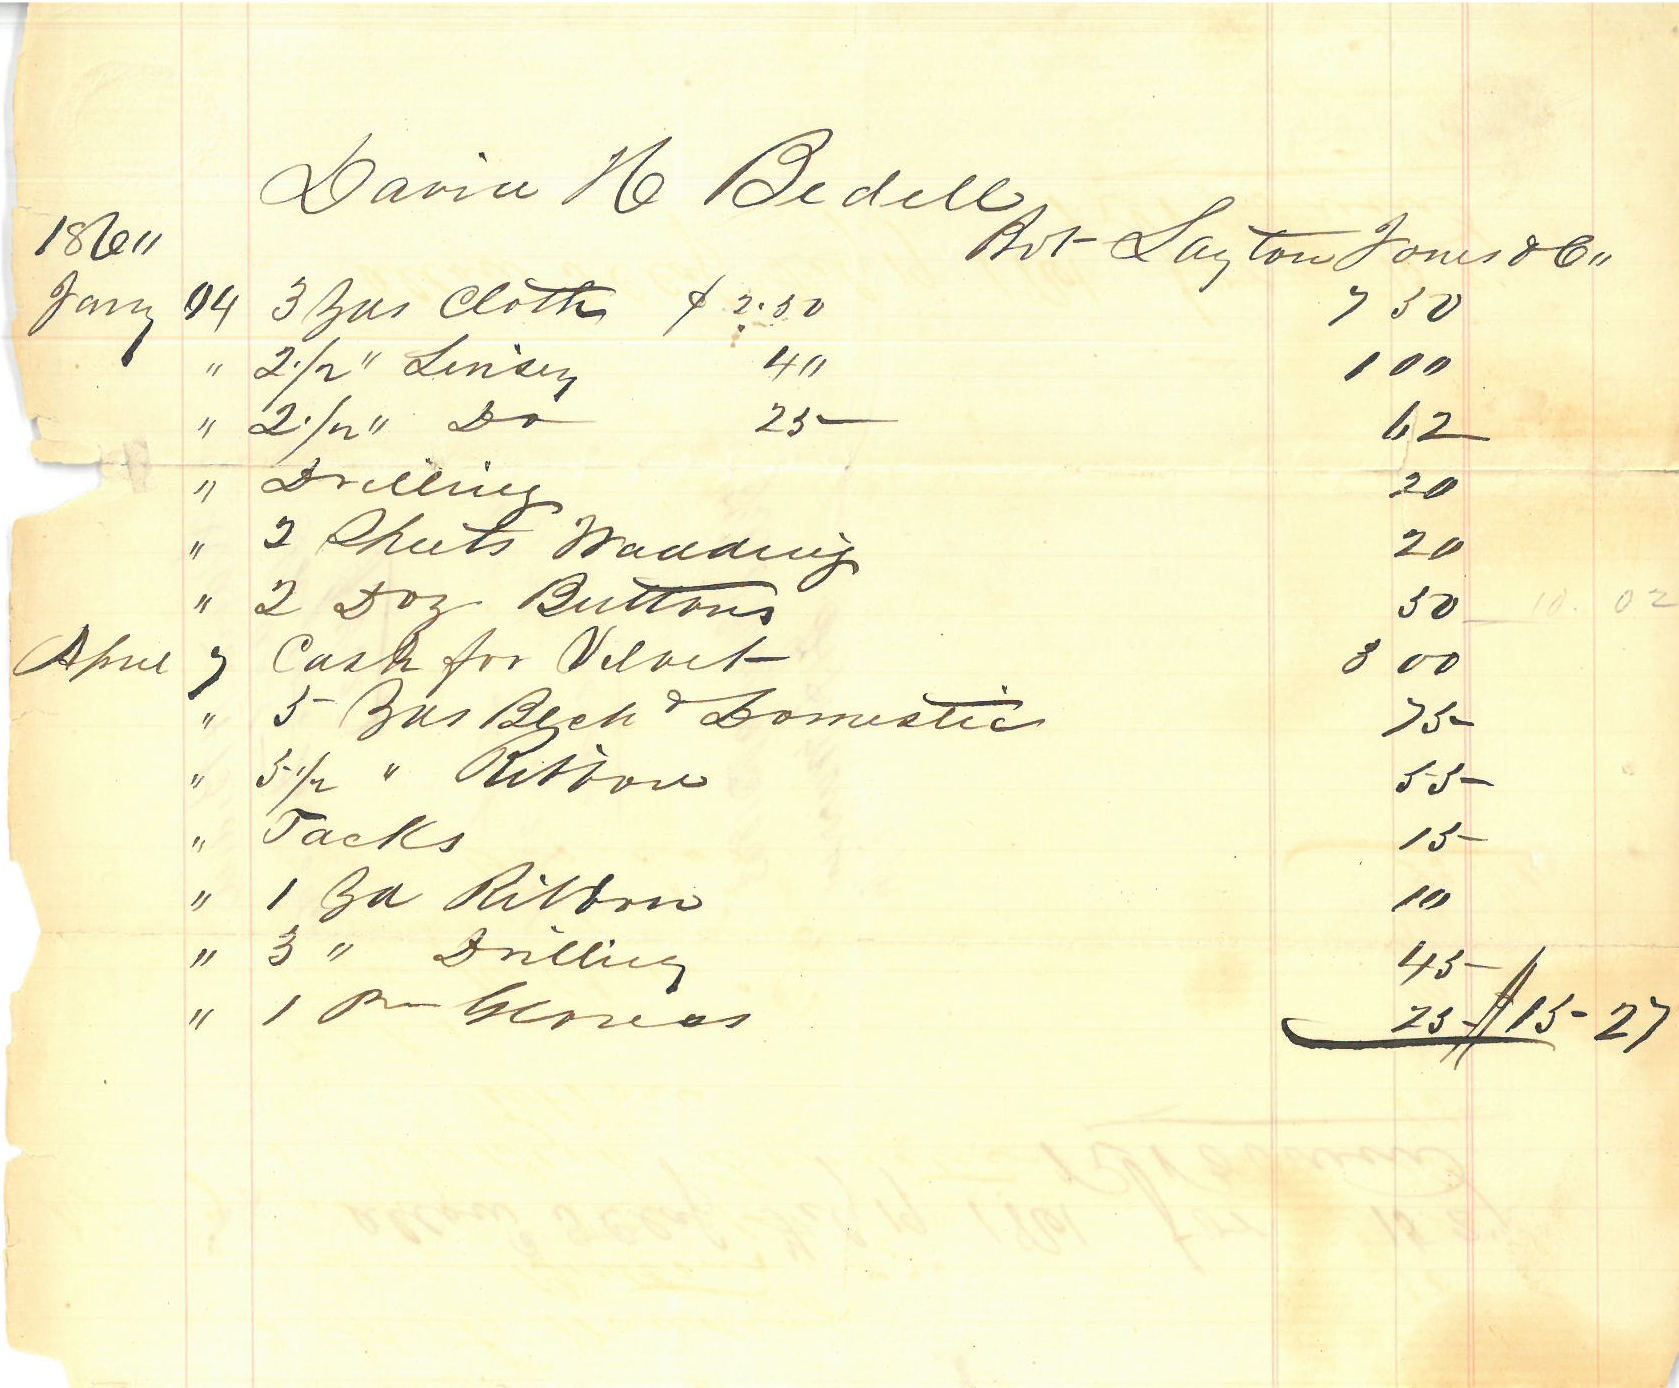 David H Bedell
1860
Bot Layton Jones & Co
Jany 04 3 Yds Cloth $ 2.50 7 50
" 2 1/2 " Linsey 40 1 00
" 2 1/2 " Do 25 62
" Drilling 20
" 2 Sheets Wadding 20
" 2 Doz Buttons 50 10.02
April 7 Cash for Velvet 3 00
" 5 Yds Blch d Domestic 75
" 5 1/2 " Ribbon 55
" Tacks 15
" 1 Yd Ribbon 10
" 3 " Drilling 45
" 1 Pr Gloves 25 $15-27